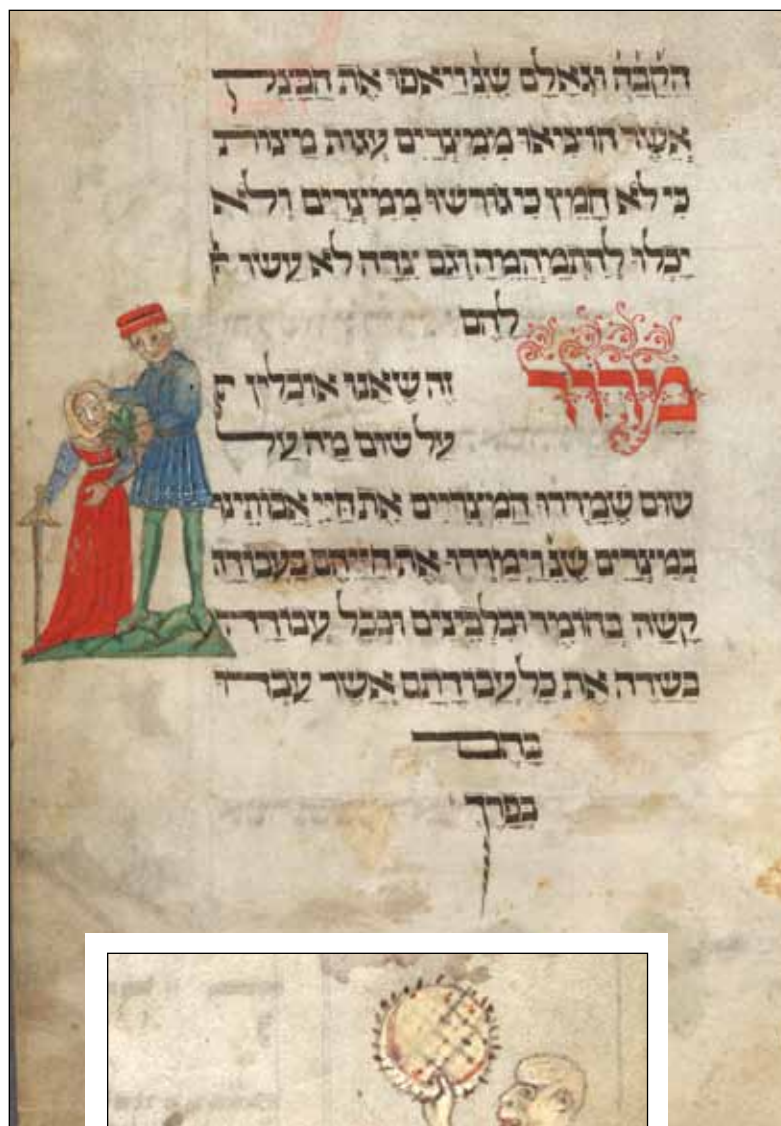 הקבה וגאלם שנ ויאפו את הבצק
אשר הוציאו ממצרים עגות מיצות
כי לא חמץ כי גורשו ממיצרים ולא
יכלו להתמהמיה וגם צדה לא עשו
להם
מרור זה שאנו אוכלין
על שום מה על
שום שמררו המיצריים את חיי אבותינו
במיצרים שנ וימררו את חייהם בעבודה
קשה בחומר ובלבינים ובכל עבודה
בשדה את כל עבודתם אשר עבדו
בהם
בפרך